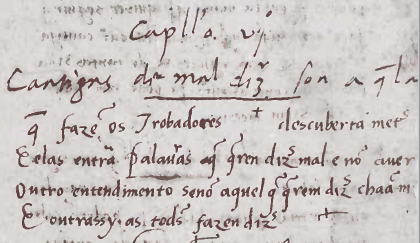 Capllo. vjº
Cantigas de mal dizr son aq̃la
q̃ fazẽ os Trobadores + descuberta metẽ
E elas entrã palavras ẽ q̃ q̃ren dizr mal e nõ aver
Outro entendimento senõ aquel q̃ q̃rem dizr chaãm
E outrassy as todas fazen dizr +